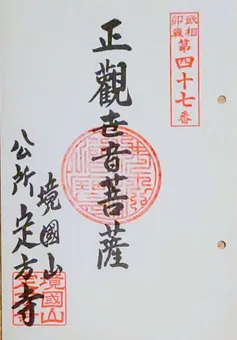 武相
卯歳
第四十七番
正觀世音菩薩
境國山
公所 定方寺
境國山